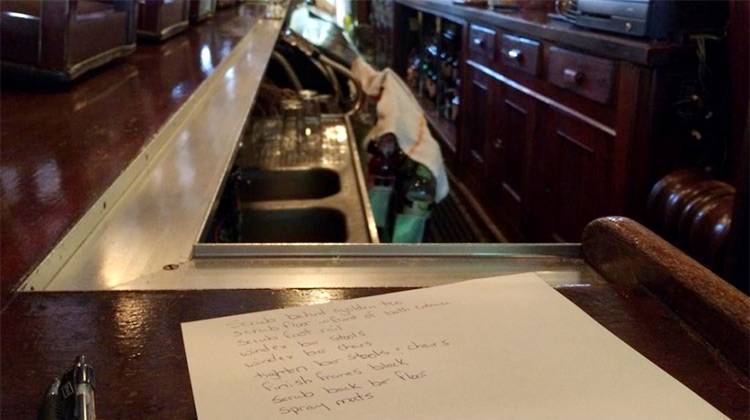 Scrub behind system too
Scrub floor in front of both
Scrub foot rail
windex bar stools
windex bar chairs
tighten bar stools + chairs
finish frames black
scrub back bar floor
spray mats